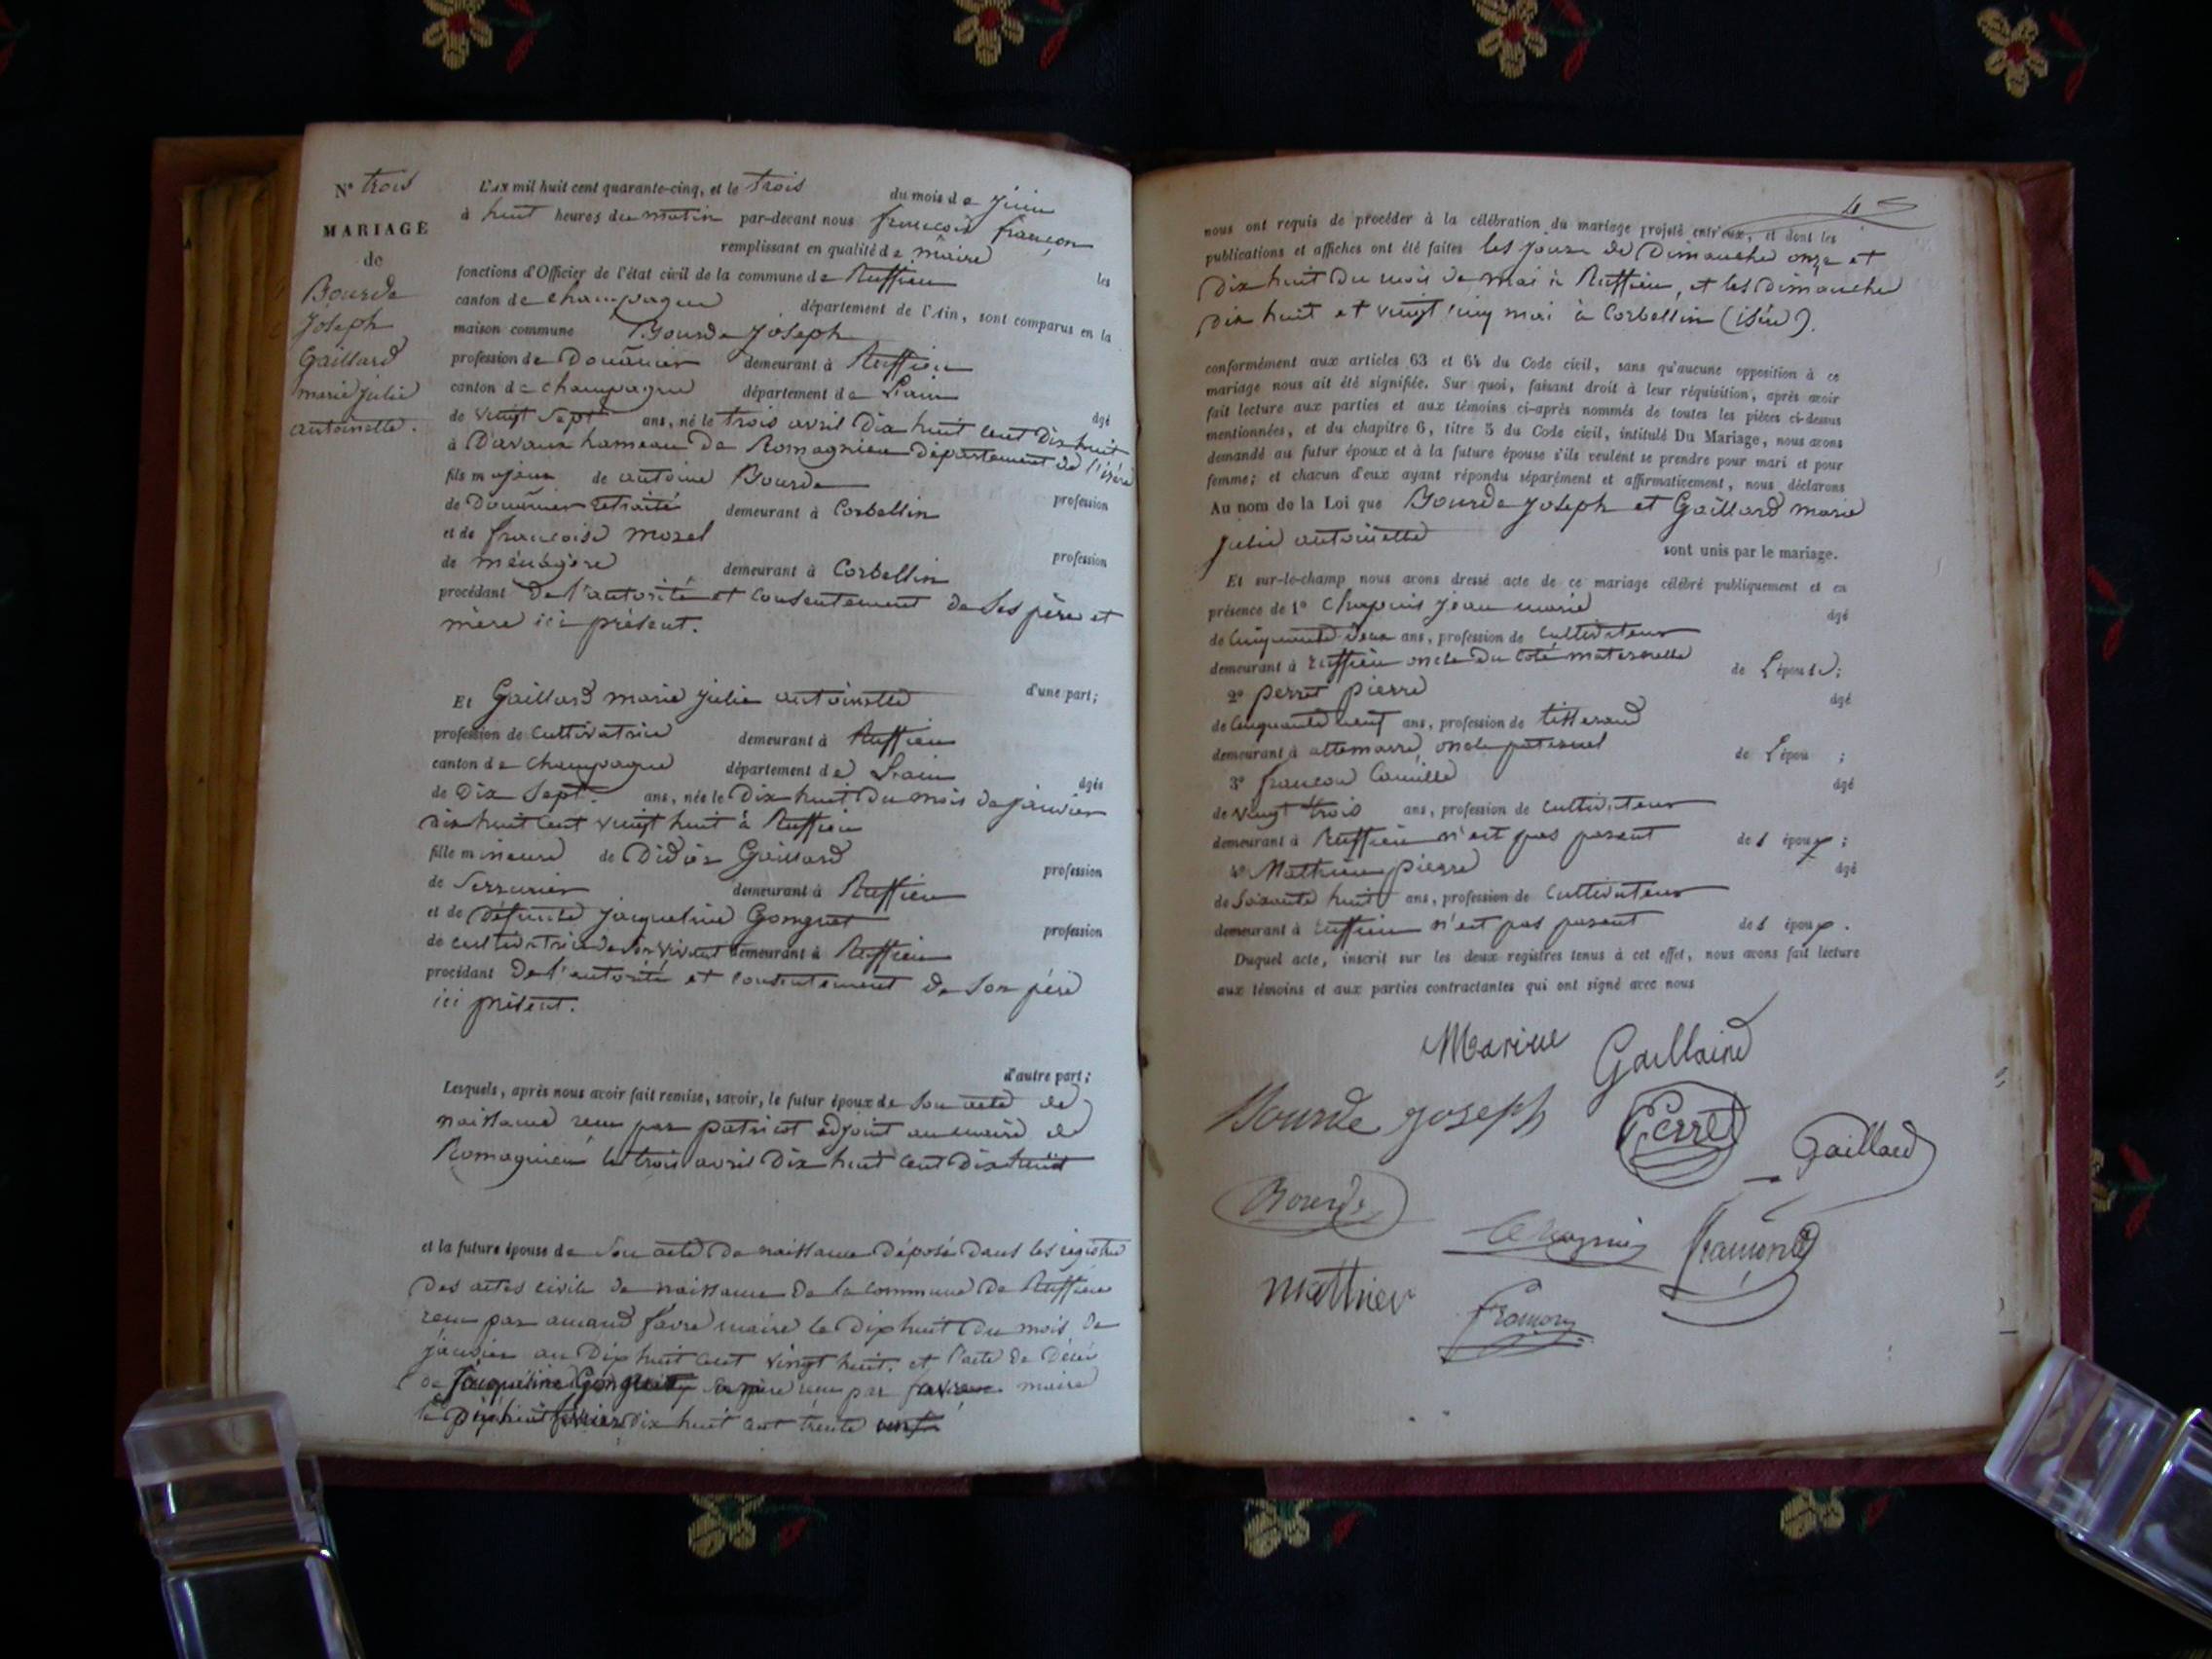 N° trois
MARIAGE
de
Bourde
Joseph
Gaillard
marie julie
antoinette.
L'AN mil huit cent quarante-cinq, et le trois du mois de juin
à huit heures du matin par-devant nous françois françon
remplissant en qualité de maire les
fonctions d'Officier de l'état civil de la commune de Ruffieu
canton de champagne département de l'Ain, sont comparus en la
maison commune Bourde Joseph
profession de Douanier demeurant à Ruffieu
canton de champagne département de L'ain
âgé
de vingt sept ans, né le trois avril Dix huit cent Dix huit
à Davaux hameau de Romagnieu département de l'isère
fils majeur de antoine Bourde
profession
de Douanier retraité demeurant à Corbellin
et de françoise morel
profession
de ménagère demeurant à Corbellin
procédant de l'autorité et consentement de ses père et
mère ici présent.
d'une part;
Et Gaillard marie julie antoinette
profession de cultivatrice demeurant à Ruffieu
canton de champagne département de L'ain
âgés
de Dix Sept. ans, née le Dix huit du mois de janvier
dix huit cent vingt huit à Ruffieu
fille mineure de Didier Gaillard
profession
de Serrurier demeurant à Ruffieu
et de défunte jacqueline Gonguet
profession
de cultivatrice de son vivant demeurant à Ruffieu
procédant de l'autorité et consentement de son père
ici présent.
d'autre part;
Lesquels, après nous avoir fait remise, savoir, le futur époux de son acte de
naissance reçu par patricot adjoint au maire de
Romagnieu le trois avril Dix huit cent Dix huit
et la future épouse de son acte de naissance déposé dans les registre
des actes civile de naissance de la commune de Ruffieu
reçu par amand favre maire le dix huit du mois de
janvier an Dix huit cent vingt huit. et l'acte de Décès
de Jacqueline Gonguet sa mère reçu par favre maire
le dix huit février dix huit cent trente
nous ont requis de procéder à la célébration du mariage projeté entr'eux, et dont les
publications et affiches ont été faites les jours de Dimanche onze et
dix huit du mois de mai à Ruffieu, et les dimanche
dix huit et vingt cinq mai à Corbellin (isère).
conformément aux articles 63 et 64 du Code civil, sans qu'aucune opposition à ce
mariage nous ait été signifiée. Sur quoi, faisant droit à leur réquisition, après avoir
fait lecture aux parties et aux témoins ci-après nommés de toutes les pièces ci-dessus
mentionnées, et du chapitre 6, titre 5 du Code civil, intitulé Du Mariage, nous avons
demandé au futur époux et à la future épouse s'ils veulent se prendre pour mari et pour
femme; et chacun d'eux ayant répondu séparément et affirmativement, nous déclarons
Au nom de la Loi que Bourde Joseph et Gaillard marie
julie antoinette
sont unis par le mariage.
Et sur-le-champ nous avons dressé acte de ce mariage célébré publiquement et en
présence de 1° Chapuis jean marie âgé
de cinquante deux ans, profession de cultivateur
demeurant à ruffieu oncle du coté maternelle de L'épouse;
2° perret pierre âgé
de cinquante neuf ans, profession de tisserand
demeurant à attemarre, oncle paternel de L'épou ;
3° françon Camille âgé
de vingt trois ans, profession de cultivateur
demeurant à Ruffieu n'est pas parent des époux ;
4° Mathieu pierre âgé
de soixante huit ans, profession de cultivateur
demeurant à ruffieu n'est pas parent des époux .
Duquel acte, inscrit sur les deux registres tenus à cet effet, nous avons fait lecture
aux témoins et aux parties contractantes qui ont signé avec nous
Gaillaird
Bourde joseph
Perret
Gaillard
Bourde
mathieu
françon